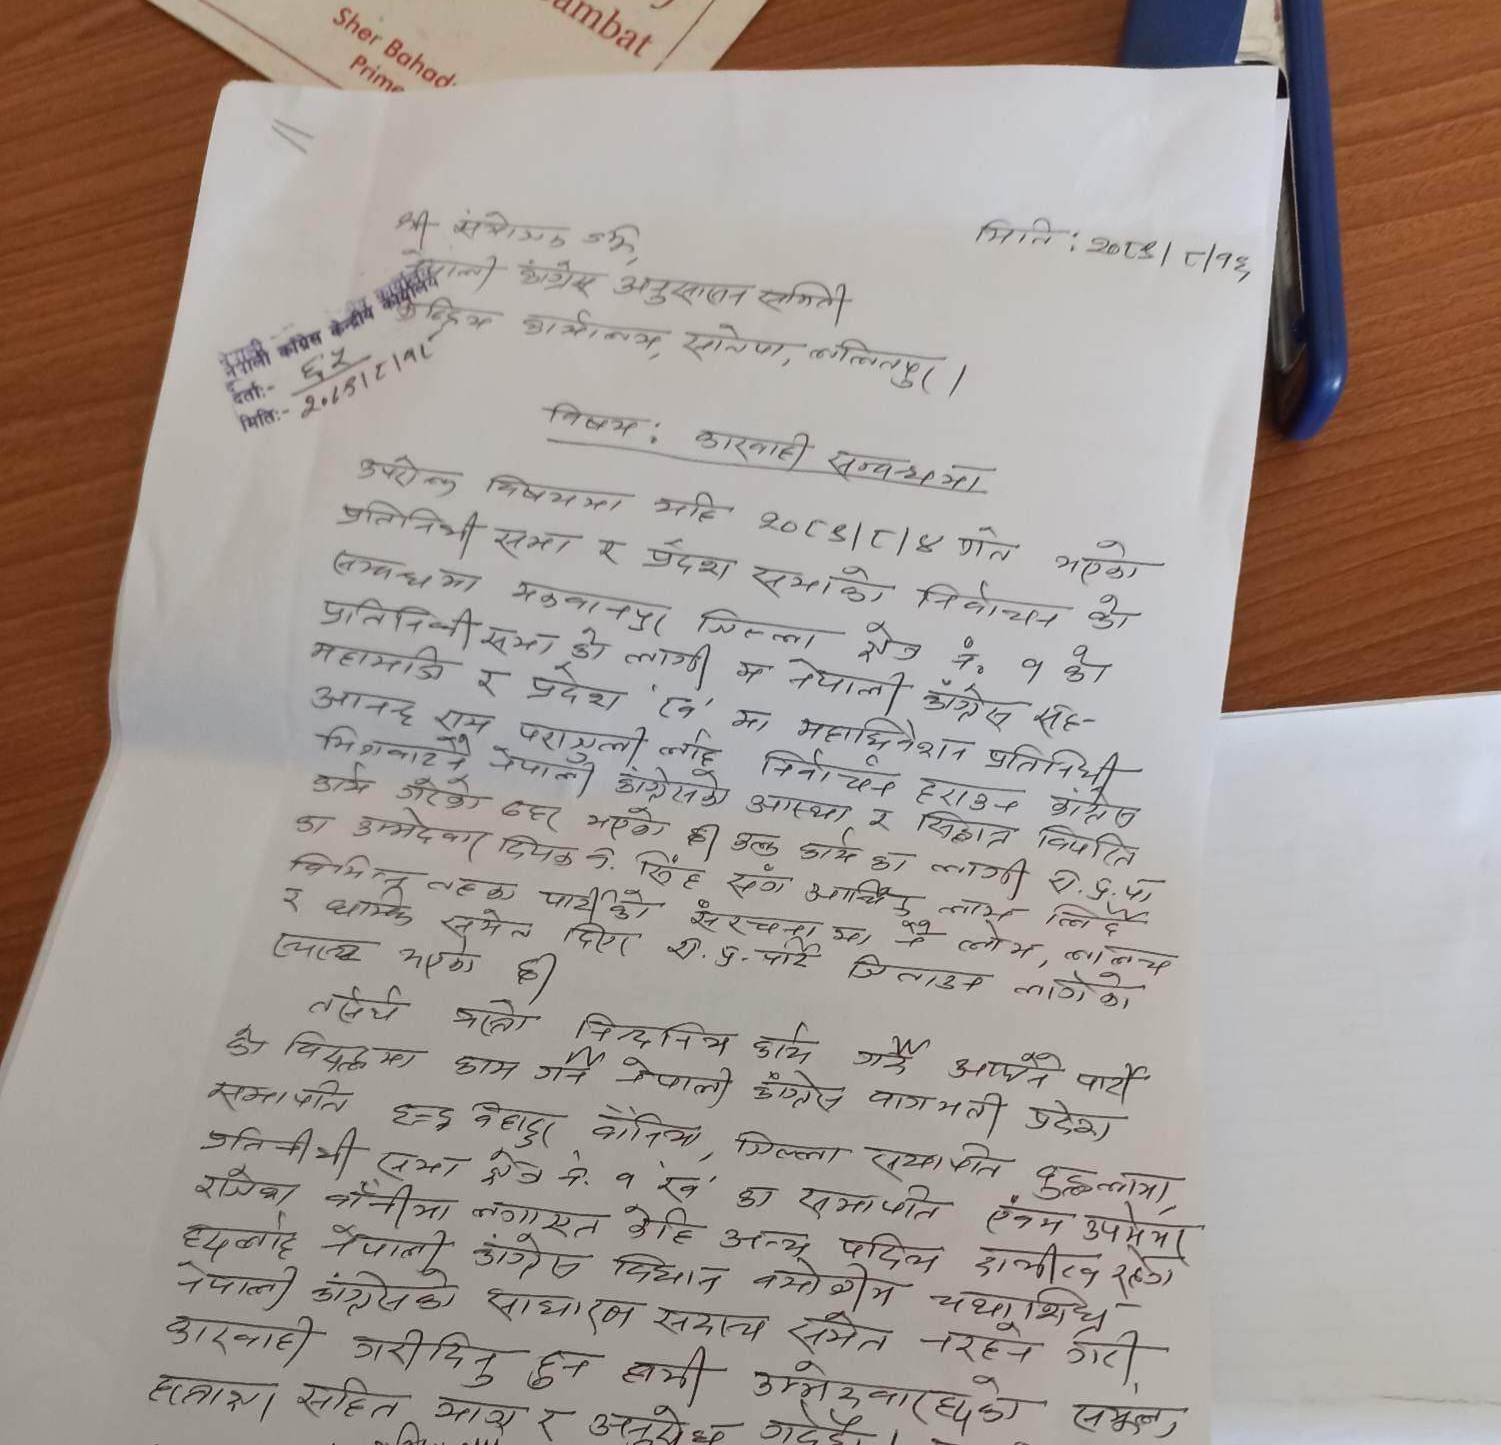 ambat
Sher Bahad
Prime
श्री संयोजक ज्यू,
मिति: २०७९/८/१६
नेपाली कांग्रेस अनुसासन समिती
केन्द्रिय कार्यालय, सानेपा, ललितपुर।
नेपाली कांग्रेस केन्द्रीय कार्यालय
दर्ता:- ६५
मिति:- २०७९/८/१८
विषय: कारवाही सम्वन्धमा
उपरोक्त विषयमा यहि २०७९/८/४ गते भएको
प्रतिनिधी सभा र प्रदेश सभाको निर्वाचन को
सम्वन्धमा मकवानपुर जिल्ला क्षेत्र नं. १ को
प्रतिनिधी सभा को लागी म नेपाली कांग्रेस सह-
महामन्त्रि र प्रदेश 'ख' मा महाधिवेशन प्रतिनिधी
आनन्द राम पराजुली लाई निर्वाचन हराउन कांग्रेस
नेपाली कांग्रेसको आस्था र सिद्धान्त विपरित
कार्य गरेको ठहर भएको छ। उक्त कार्य का लागी रा.प्र.पा
का उम्मेदवार दिपक व. सिंह संग आर्थिक लाभ लिदै
विभिन्न तहका पार्टीको संरचना मा नै लोभ, लालच
र धम्कि समेत दिएर रा.प्र.पार्टि जिताउन लागेको
स्पस्ट भएको छ।
तसर्थ यस्तो निन्दनिय कार्य गर्दै आफ्नै पार्टी
को विपक्षमा काम गर्ने नेपाली कांग्रेस वागमती प्रदेश
सभापति इन्द्र वहादुर वानिया, जिल्ला सभापति
प्रतिनीधी सभा क्षेत्र नं. १ 'ख' का सभापति एंवम उपमेयर
राजेश वानीया लगायत केहि अन्य पदिय दायीत्व रहेका
हरुलाई नेपाली कांग्रेस विधान वमोजीम यथाशिघ्र
नेपाली कांग्रेसको साधारण सदस्य समेत नरहने गरी
कारवाही गरीदिनु हुन हामी उम्मेदवारहरुको
सहित आग्रह र अनुरोध गर्दछौं।